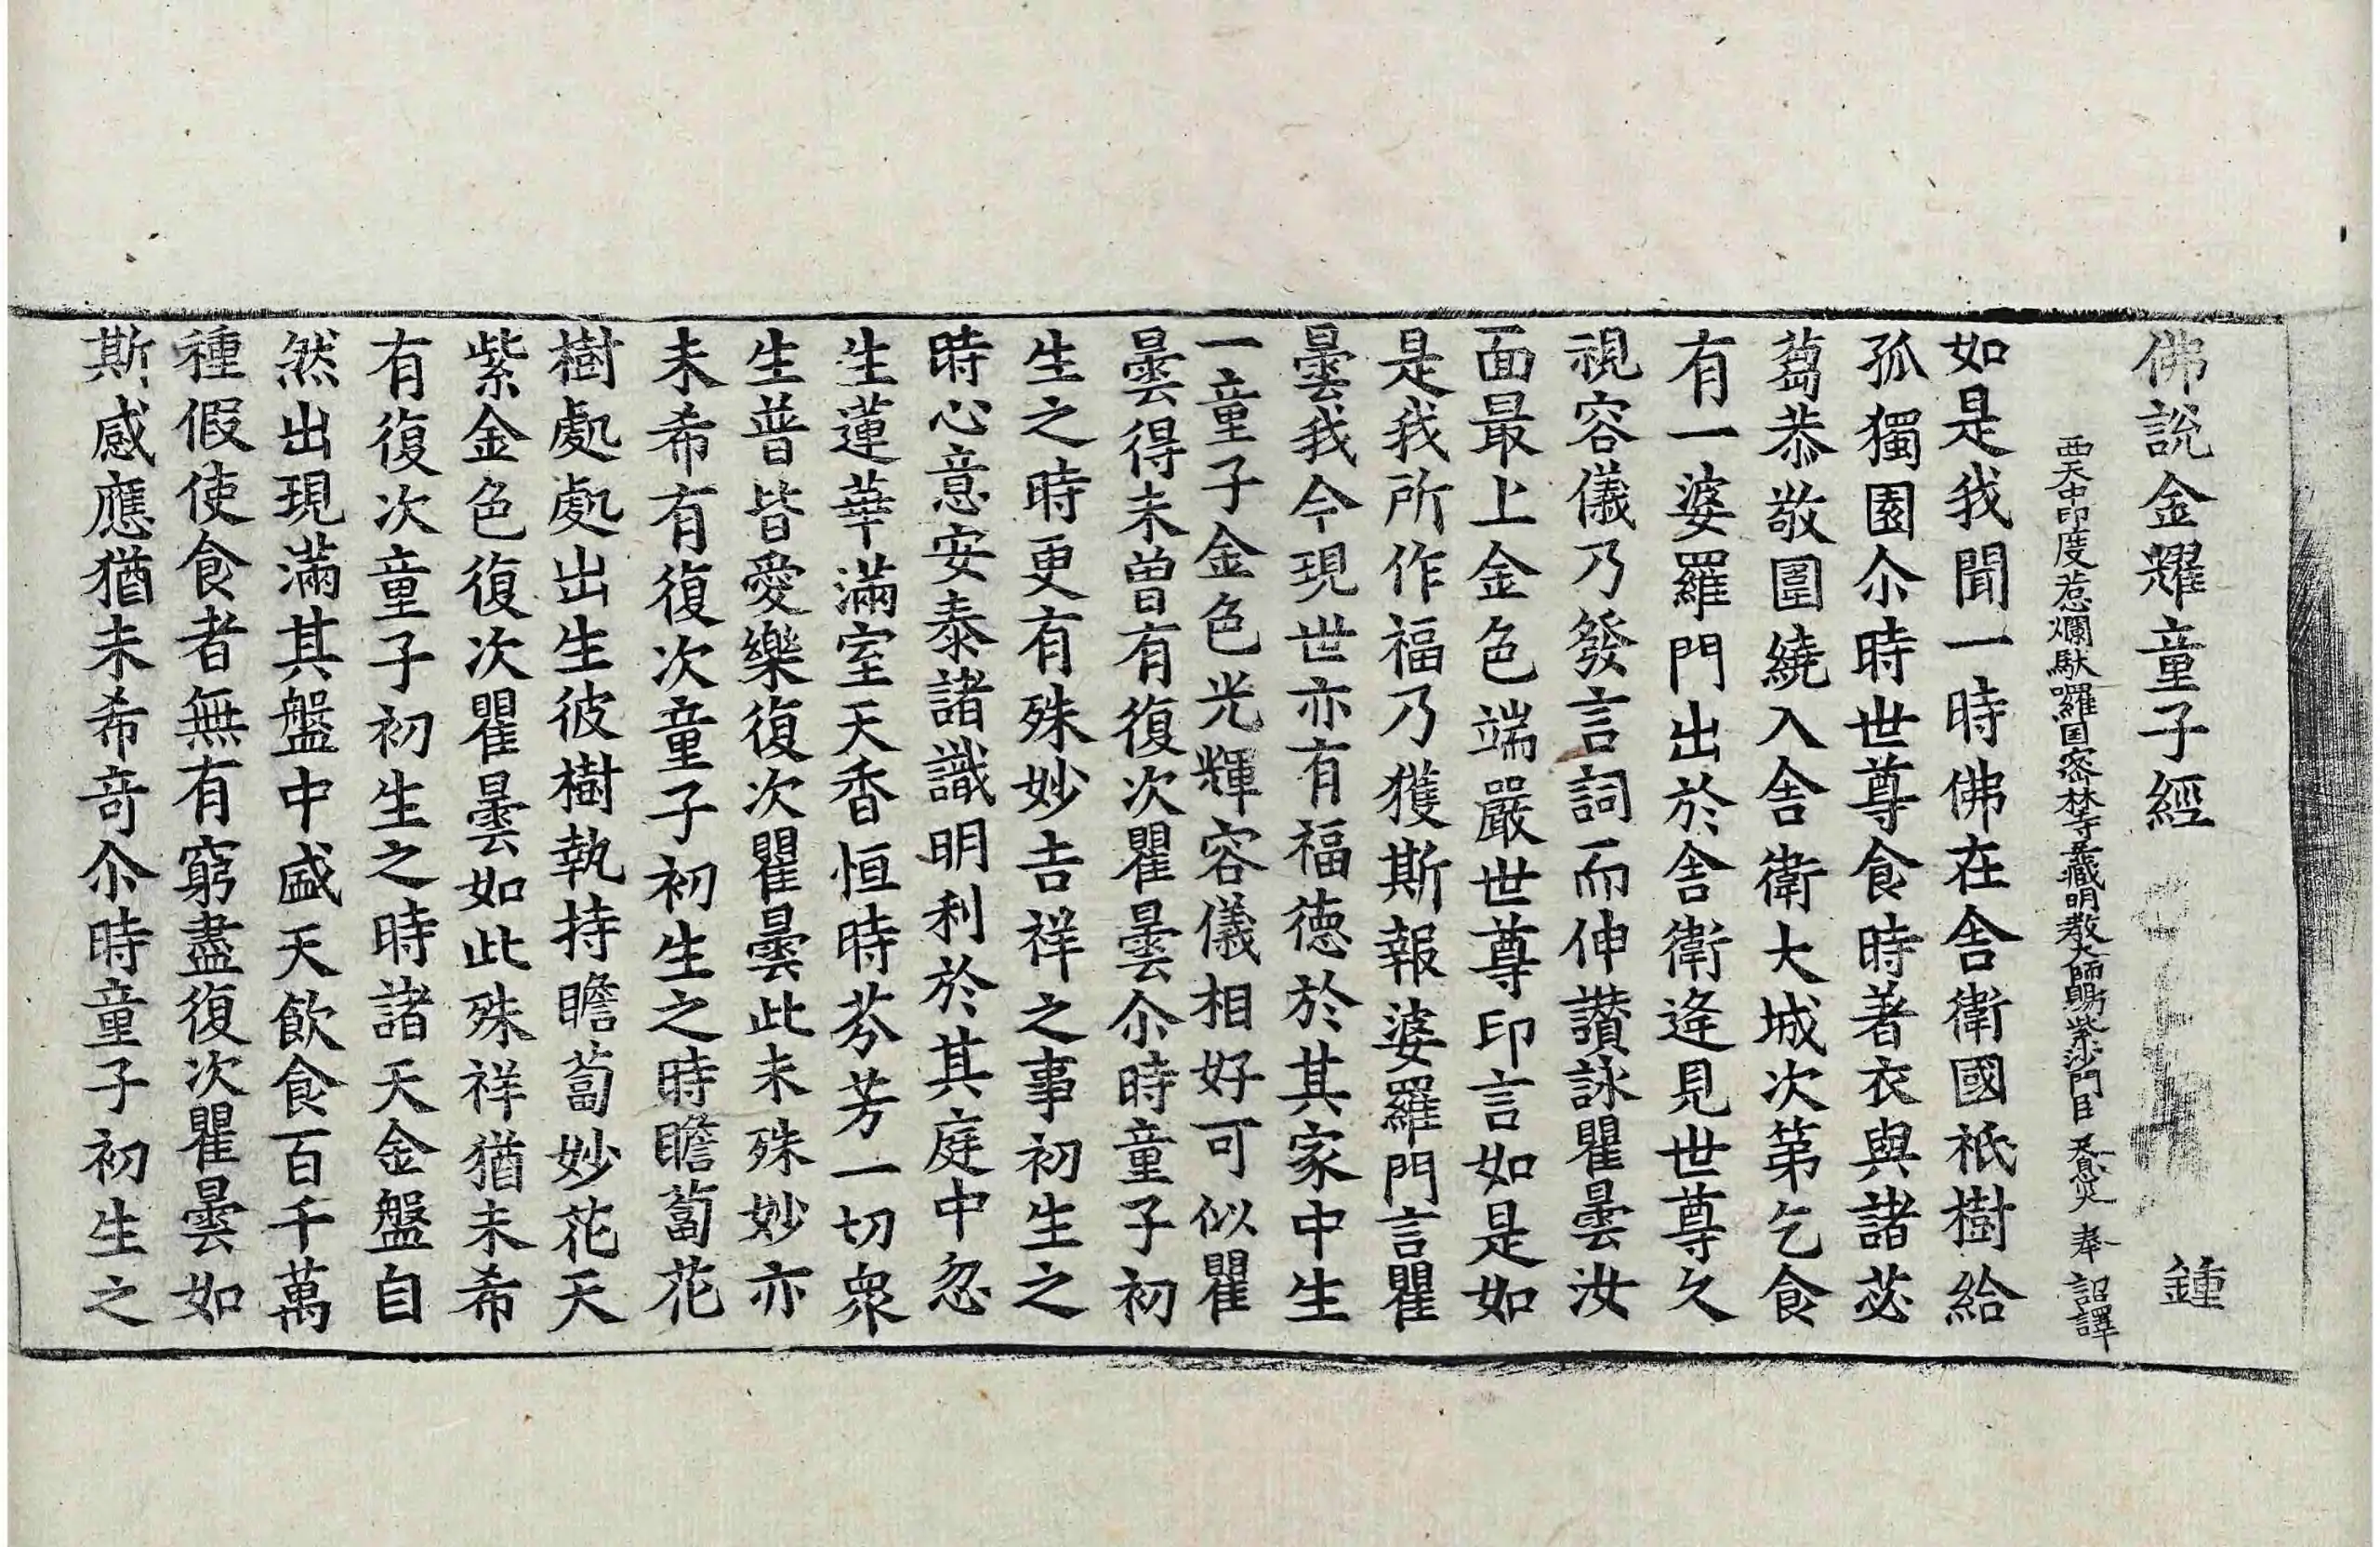 佛說金耀童子經 鍾
西天中印度惹爛馱囉国密林寺三藏明教大師賜紫沙門臣 天息灾 奉 詔譯
如是我聞一時佛在舎衛國祇樹給
孤獨園尒時世尊食時著衣與諸苾
蒭恭敬圍繞入舎衛大城次第乞食
有一婆羅門出於舎衛逢見世尊久
視容儀乃發言詞而伸讃詠瞿曇汝
面最上金色端嚴世尊印言如是如
是我所作福乃獲斯報婆羅門言瞿
曇我今現世亦有福德於其家中生
一童子金色光輝容儀相好可似瞿
曇得未曾有復次瞿曇尒時童子初
生之時更有殊妙吉祥之事初生之
時心意安泰諸識明利於其庭中忽
生蓮華滿室天香恒時芬芳一切衆
生普皆愛樂復次瞿曇此未殊妙亦
未希有復次童子初生之時瞻蔔花
樹處處出生彼樹執持瞻蔔妙花天
紫金色復次瞿曇如此殊祥猶未希
有復次童子初生之時諸天金盤自
然出現滿其盤中盛天飲食百千萬
種假使食者無有窮盡復次瞿曇如
斯感應猶未希奇尒時童子初生之